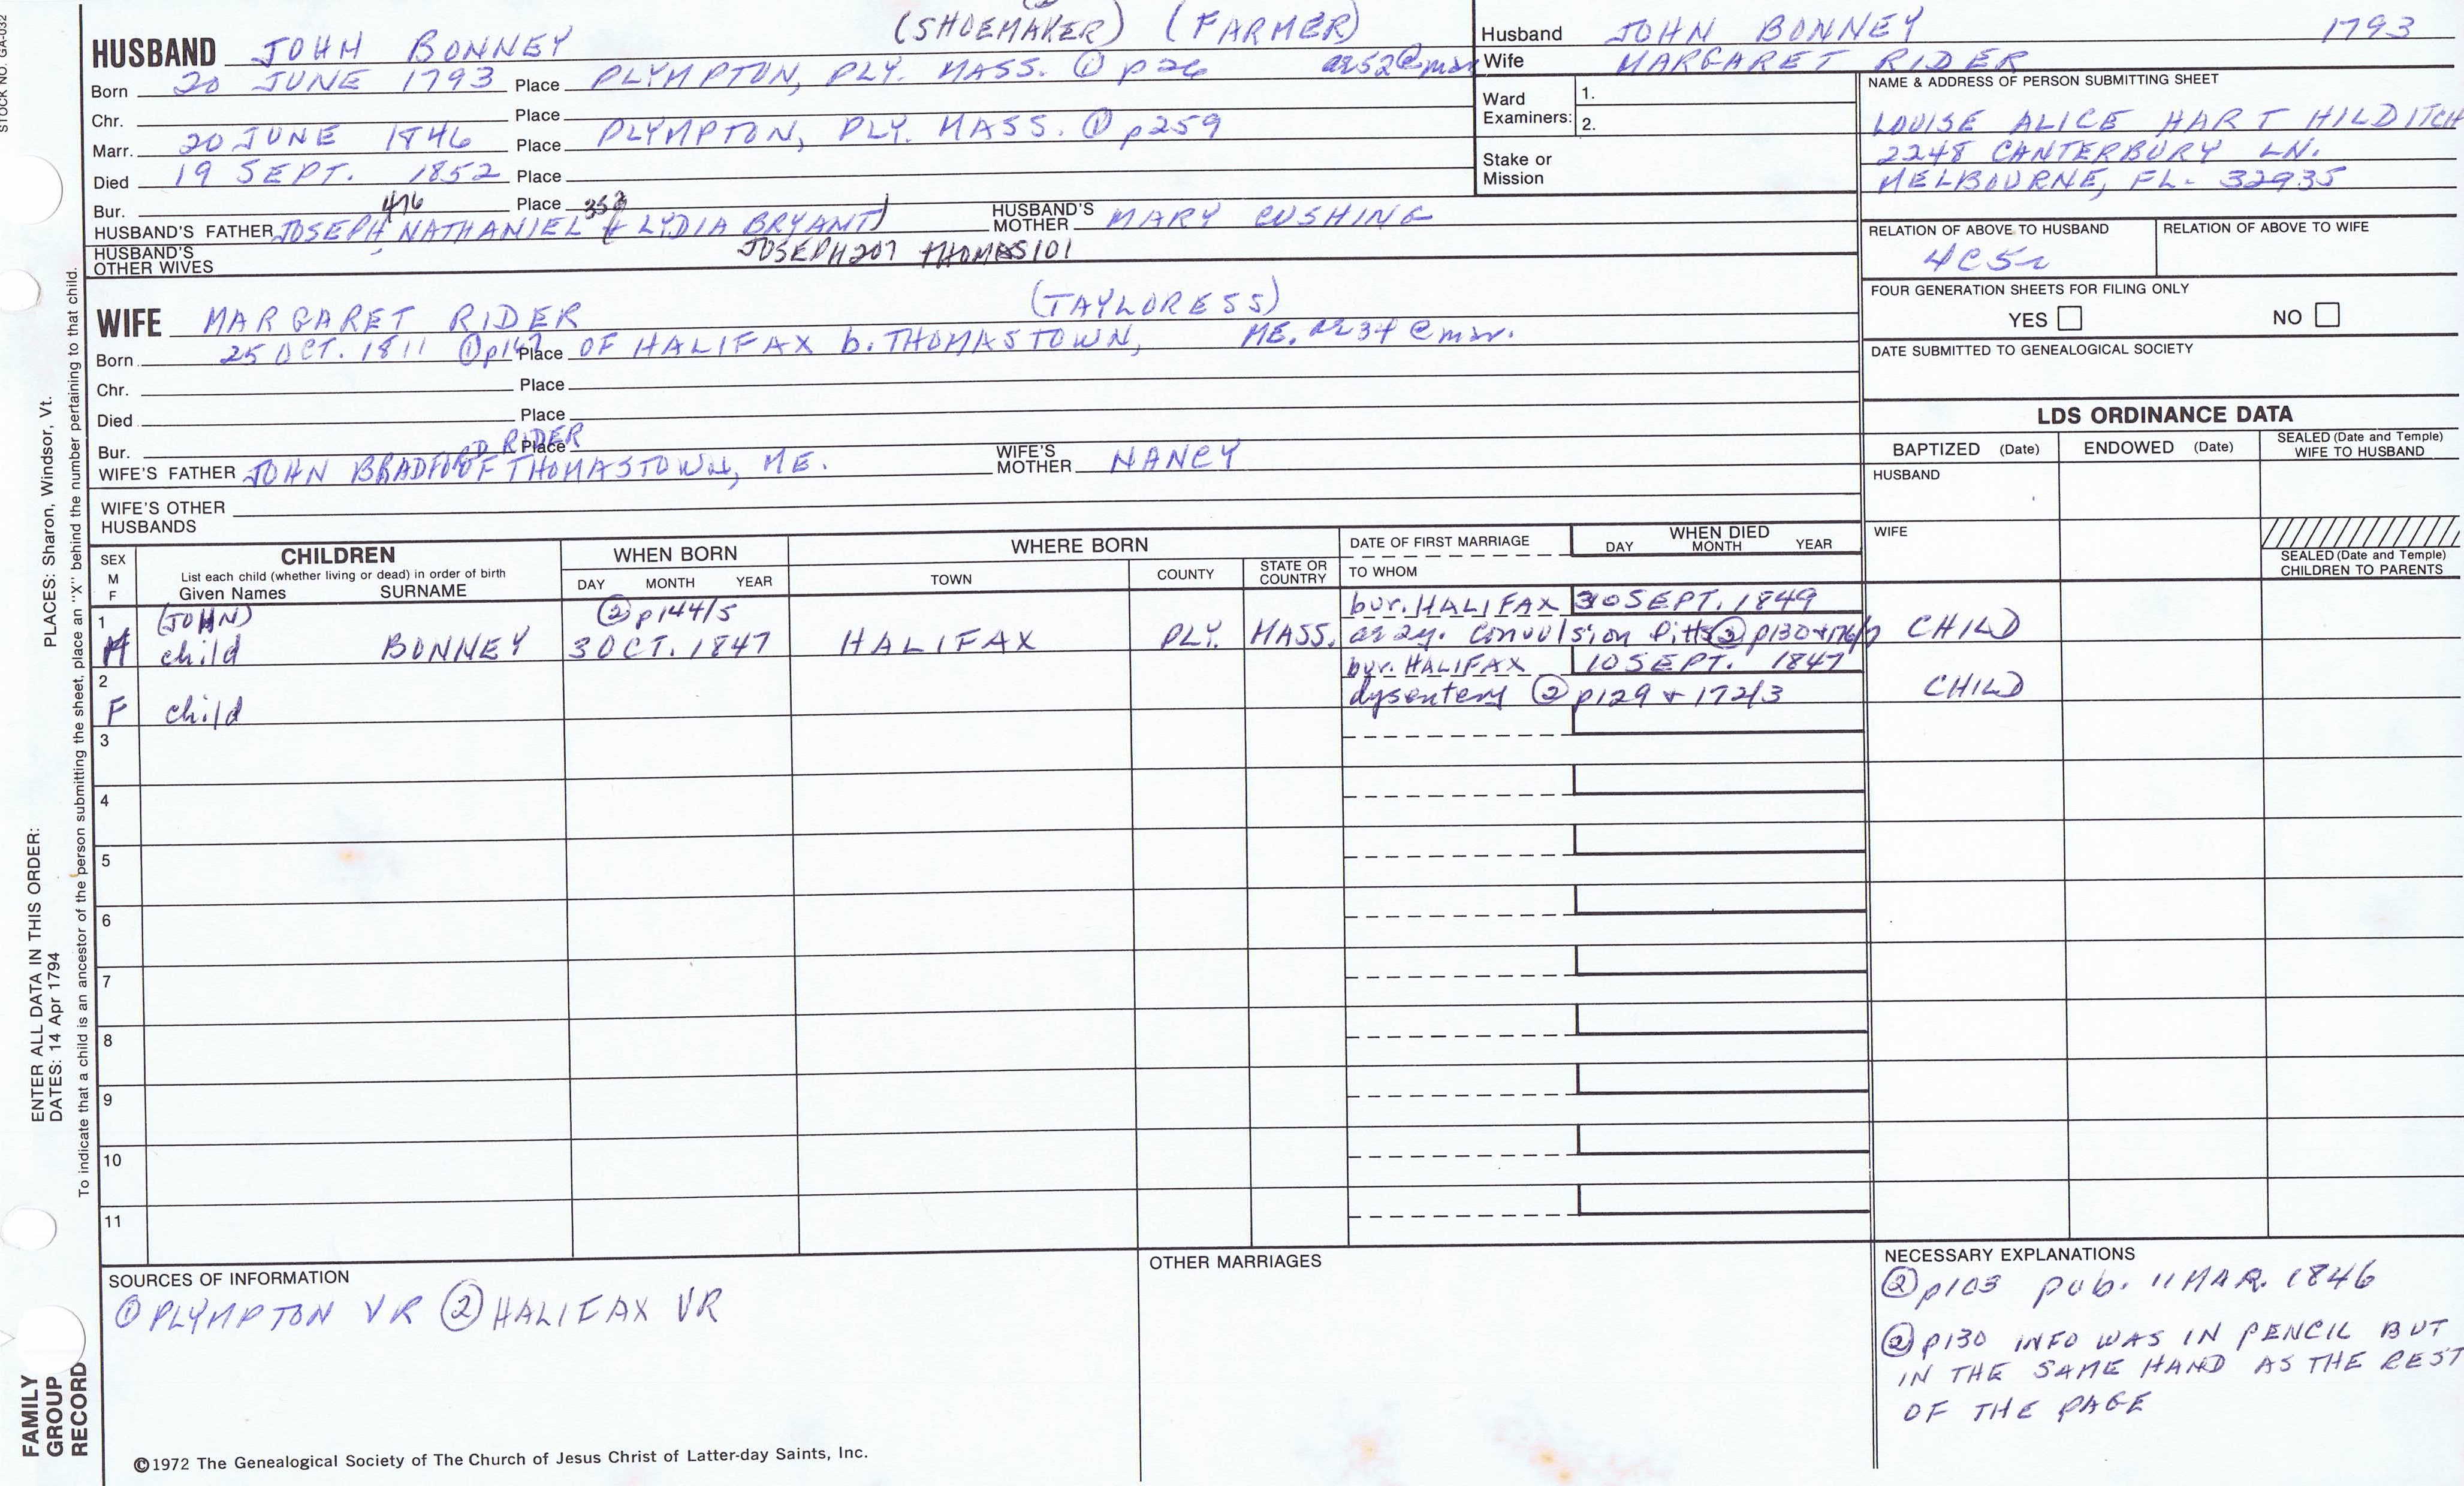 STOCK NO. GA-032
(SHOEMAKER) (FARMER)
HUSBAND JOHN BONNEY
Born 20 JUNE 1793 Place PLYMPTON, PLY. MASS. ① p26 ae 52 @ mar
Chr. Place
Marr. 20 JUNE 1846 Place PLYMPTON, PLY. MASS. ① p259
Died 19 SEPT. 1852 Place
Bur. Place
476 352
HUSBAND'S FATHER JOSEPH, NATHANIEL & LYDIA BRYANT) HUSBAND'S MOTHER MARY CUSHING
HUSBAND'S OTHER WIVES
JOSEPH 207 THOMAS 101
Husband JOHN BONNEY 1793
Wife MARGARET RIDER
Ward Examiners: 1.
2.
Stake or Mission
NAME & ADDRESS OF PERSON SUBMITTING SHEET
LOUISE ALICE HART HILDITCH
2248 CANTERBURY LN.
MELBOURNE, FL. 32935
RELATION OF ABOVE TO HUSBAND RELATION OF ABOVE TO WIFE
4C5r
FOUR GENERATION SHEETS FOR FILING ONLY
YES NO
DATE SUBMITTED TO GENEALOGICAL SOCIETY
(TAYLORESS)
WIFE MARGARET RIDER
Born 25 OCT. 1811 ① p147 Place OF HALIFAX b. THOMASTOWN, ME. ae 34 @ mar.
Chr. Place
Died Place
Bur. Place
WIFE'S FATHER JOHN BRADFORD RIDER OF THOMASTOWN, ME. WIFE'S MOTHER NANCY
WIFE'S OTHER HUSBANDS
LDS ORDINANCE DATA
BAPTIZED (Date) ENDOWED (Date) SEALED (Date and Temple) WIFE TO HUSBAND
HUSBAND
WIFE
SEALED (Date and Temple) CHILDREN TO PARENTS
SEX M F
CHILDREN
List each child (whether living or dead) in order of birth
Given Names SURNAME
WHEN BORN
DAY MONTH YEAR
WHERE BORN
TOWN COUNTY STATE OR COUNTRY
DATE OF FIRST MARRIAGE
TO WHOM
WHEN DIED
DAY MONTH YEAR
1 (JOHN) ② p144/5 bur. HALIFAX 30 SEPT. 1849
M child BONNEY 3 OCT. 1847 HALIFAX PLY. MASS. ae 2y. convulsion fitts ② p130 & 176/7 CHILD
2 bur. HALIFAX 10 SEPT. 1847
F child dysentery ② p129 & 172/3 CHILD
3
4
5
6
7
8
9
10
11
SOURCES OF INFORMATION
① PLYMPTON VR ② HALIFAX VR
OTHER MARRIAGES
NECESSARY EXPLANATIONS
② p103 pub. 11 MAR. 1846
② p130 INFO WAS IN PENCIL BUT
IN THE SAME HAND AS THE REST
OF THE PAGE
©1972 The Genealogical Society of The Church of Jesus Christ of Latter-day Saints, Inc.
FAMILY GROUP RECORD
ENTER ALL DATA IN THIS ORDER:
DATES: 14 Apr 1794
PLACES: Sharon, Windsor, Vt.
To indicate that a child is an ancestor of the person submitting the sheet, place an "X" behind the number pertaining to that child.